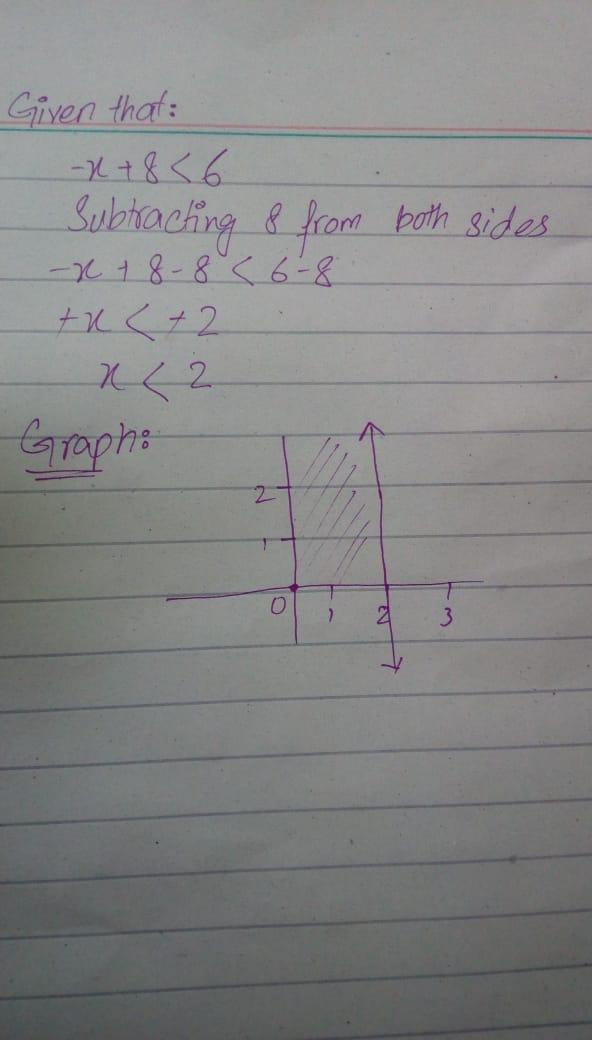 Given that:
-x + 8 < 6
Subtracting 8 from both sides
-x + 8 - 8 < 6 - 8
+x < +2
x < 2
Graph:
2
1
0 1 2 3